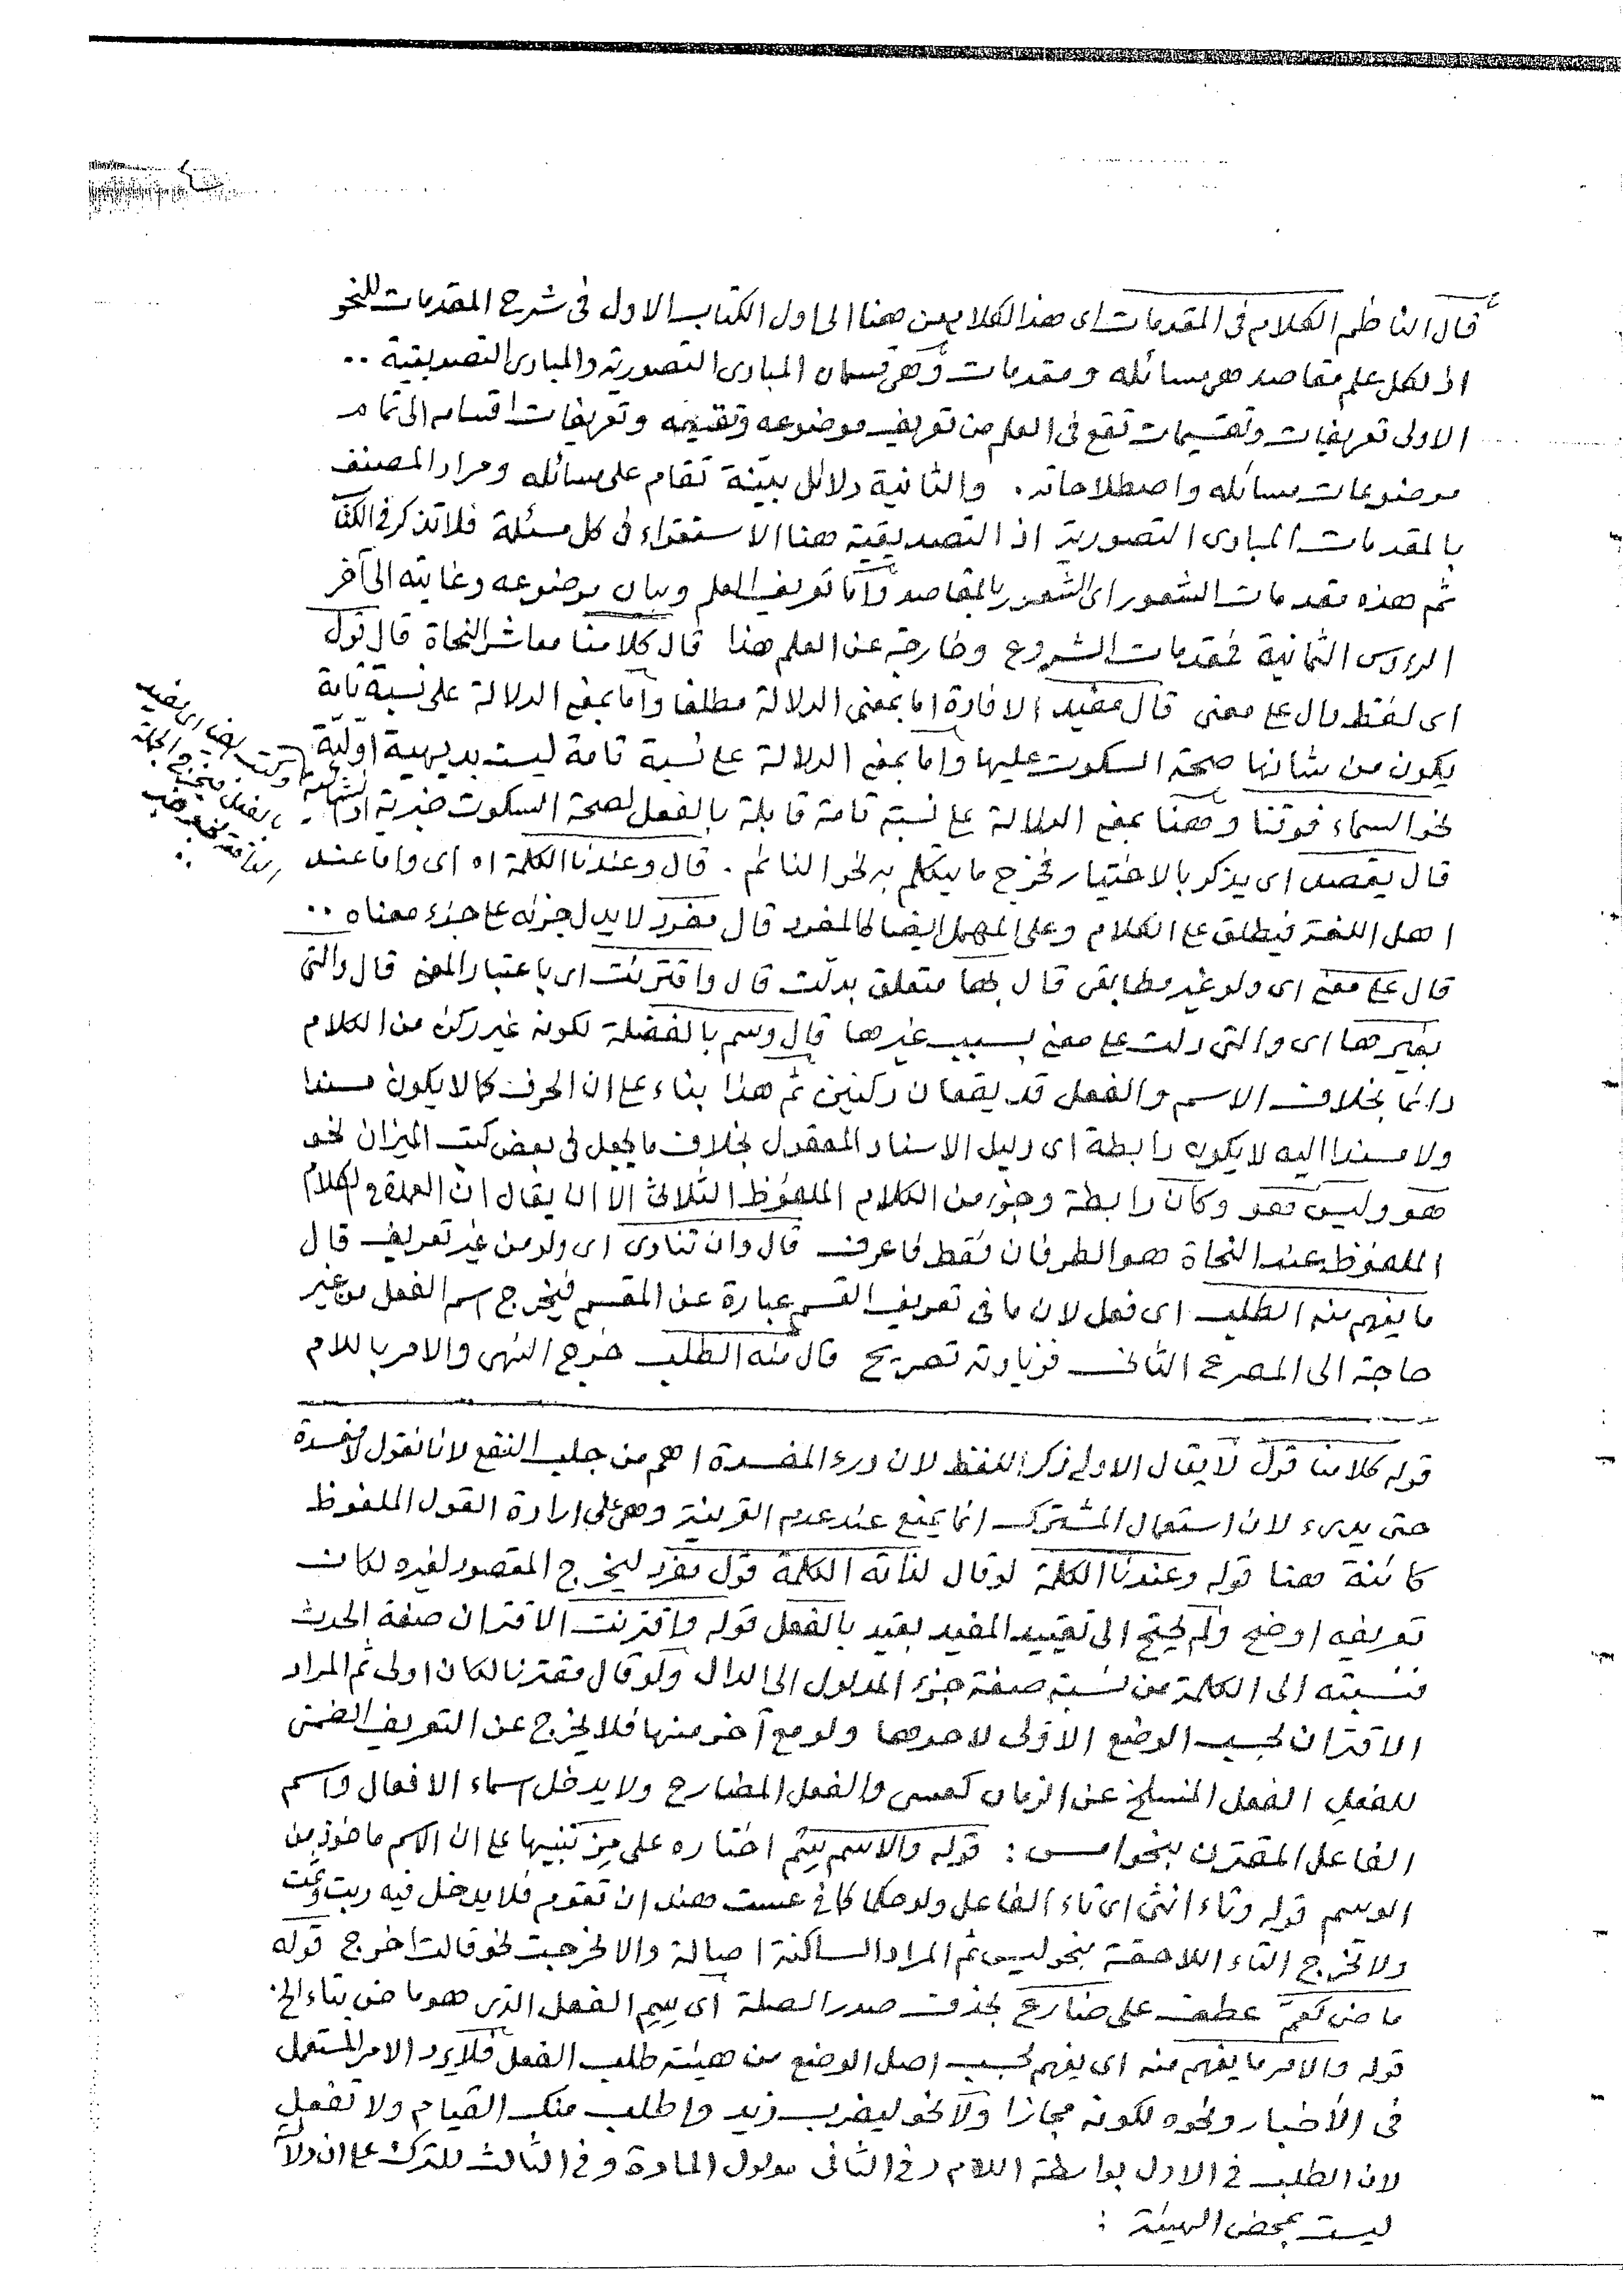 قال الناظم الكلام فى المقدمات اى هذا الكلام من هنا الى اول الكتاب الاول فى شرح المقدمات للنحو
اذ لكل علم مقاصد هى مسائله ومقدمات وهى قسمان المبادى التصورية والمبادى التصديقية ..
الاولى تعريفات وتقسيمات تقع فى العلم من تعريف موضوعه وتقسيمه وتعريفات اقسامه الى تمام
موضوعات مسائله واصطلاحاته . والثانية دلائل بيّنة تقام على مسائله ومراد المصنف
بالمقدمات المبادى التصورية اذ التصديقية هنا الاستقراء فى كل مسئلة فلا تذكر فى الكتا
ثم هذه مقدمات الشعور اى الشعور بالمقاصد واما تعريف العلم وبيان موضوعه وغايته الى آخر
الرؤس الثمانية فمقدمات الشروع وخارجة عن العلم هذا قال كلامنا معاشر النحاة قال قول
اى لفظ دال على معنى قال مفيد الافادة اما بمعنى الدلالة مطلقا واما بمعنى الدلالة على نسبة تامة
يكون من شانها صحة السكوت عليها واما بمعنى الدلالة على نسبة تامة ليست بديهية اوّليّة
نحو السماء فوقنا وههنا بمعنى الدلالة على نسبة تامة قابلة بالفعل لصحة السكوت خبرية او انشائية
قال يقصد اى يذكر بالاختيار فخرج ما يتكلم به نحو النائم . قال وعندنا الكلمة اه اى واما عند
اهل اللغة فيطلق على الكلام وعلى المهمل ايضا كالمفرد قال مفرد لا يدل جزئه على جزء معناه ..
قال على معنى اى ولو غير مطابقى قال بها متعلق بدلّت قال واقترنت اى باعتبار المعنى قال والتى
بغيرها اى والتى دلت على معنى بسبب غيرها قال وسم بالفضلة لكونه غير ركن من الكلام
دائما بخلاف الاسم والفعل قد يقعان ركنين ثم هذا بناء على ان الحرف كما لا يكون مسندا
ولا مسندا اليه لا يكون رابطة اى دليل الاسناد المعقول بخلاف ما يجعل فى بعض كتب الميزان نحو
هو وليس فهو وكان رابطة وجزء من الكلام الملفوظ الثلاثى الا ان يقال ان العمدة فى الكلام
الملفوظ عند النحاة هو الطرفان فقط فاعرف قال وان تنادى اى ولو من غير تعريف قال
ما يفهم منه الطلب اى فعل لان ما فى تعريف القسم عبارة عن المقسم فيخرج اسم الفعل من غير
حاجة الى المصرع الثانى فزيادته تصريح قال منه الطلب خرج النهى والامر باللام
قوله كلامنا قول لا يقال الاولى ذكر اللفظ لان درء المفسدة اهم من جلب النفع لانا نقول لا مفسدة
حتى يدرء لان استعمال المشترك انما يمنع عند عدم القرينة وهى على ارادة القول الملفوظ
كائنة ههنا قوله وعندنا الكلمة لو قال لذاته الكلمة قول مفرد ليخرج المقصود لغيره لكان
تعريفه اوضح ولم يحتج الى تقييد المفيد بقيد بالفعل قوله واقترنت الاقتران صفة الحدث
فنسبته الى الكلمة من نسبة صفة جزء المدلول الى الدال ولو قال مقترنا لكان اولى ثم المراد
الاقتران بحسب الوضع الاوّلى لاحدها ولو مع آخر منها فلا يخرج عن التعريف الضمنى
للفعل الفعل المنسلخ عن الزمان كعسى والفعل المضارع ولا يدخل اسماء الافعال واسم
الفاعل المقترن بنحو امس : قوله والاسم يتم اختاره على ميز تنبيها على ان الاسم ماخوذ من
الوسم قوله وتاء انثى اى تاء الفاعل ولو حكما كما فى عست هند ان تقوم فلا يدخل فيه ربت وثمت
ولا تخرج التاء اللاحقة بنحو ليس ثم المراد الساكنة اصالة والا لخرجت نحو قالت اخرج قوله
ماض كعمّ عطف على ضارع بحذف صدر الصلة اى يسم الفعل الذى هو ماض بتاء الخ.
قوله والامر ما يفهم منه اى يفهم بحسب اصل الوضع من هيئة طلب الفعل فلا يرد الامر المستعمل
فى الأخبار ونحوه لكونه مجازا ولا نحو ليضرب زيد واطلب منك القيام ولا تفعل
لان الطلب فى الاول بواسطة اللام وفى الثانى مدلول المادة وفى الثالث للترك على ان دلالته
ليست بمحض الهيئة :